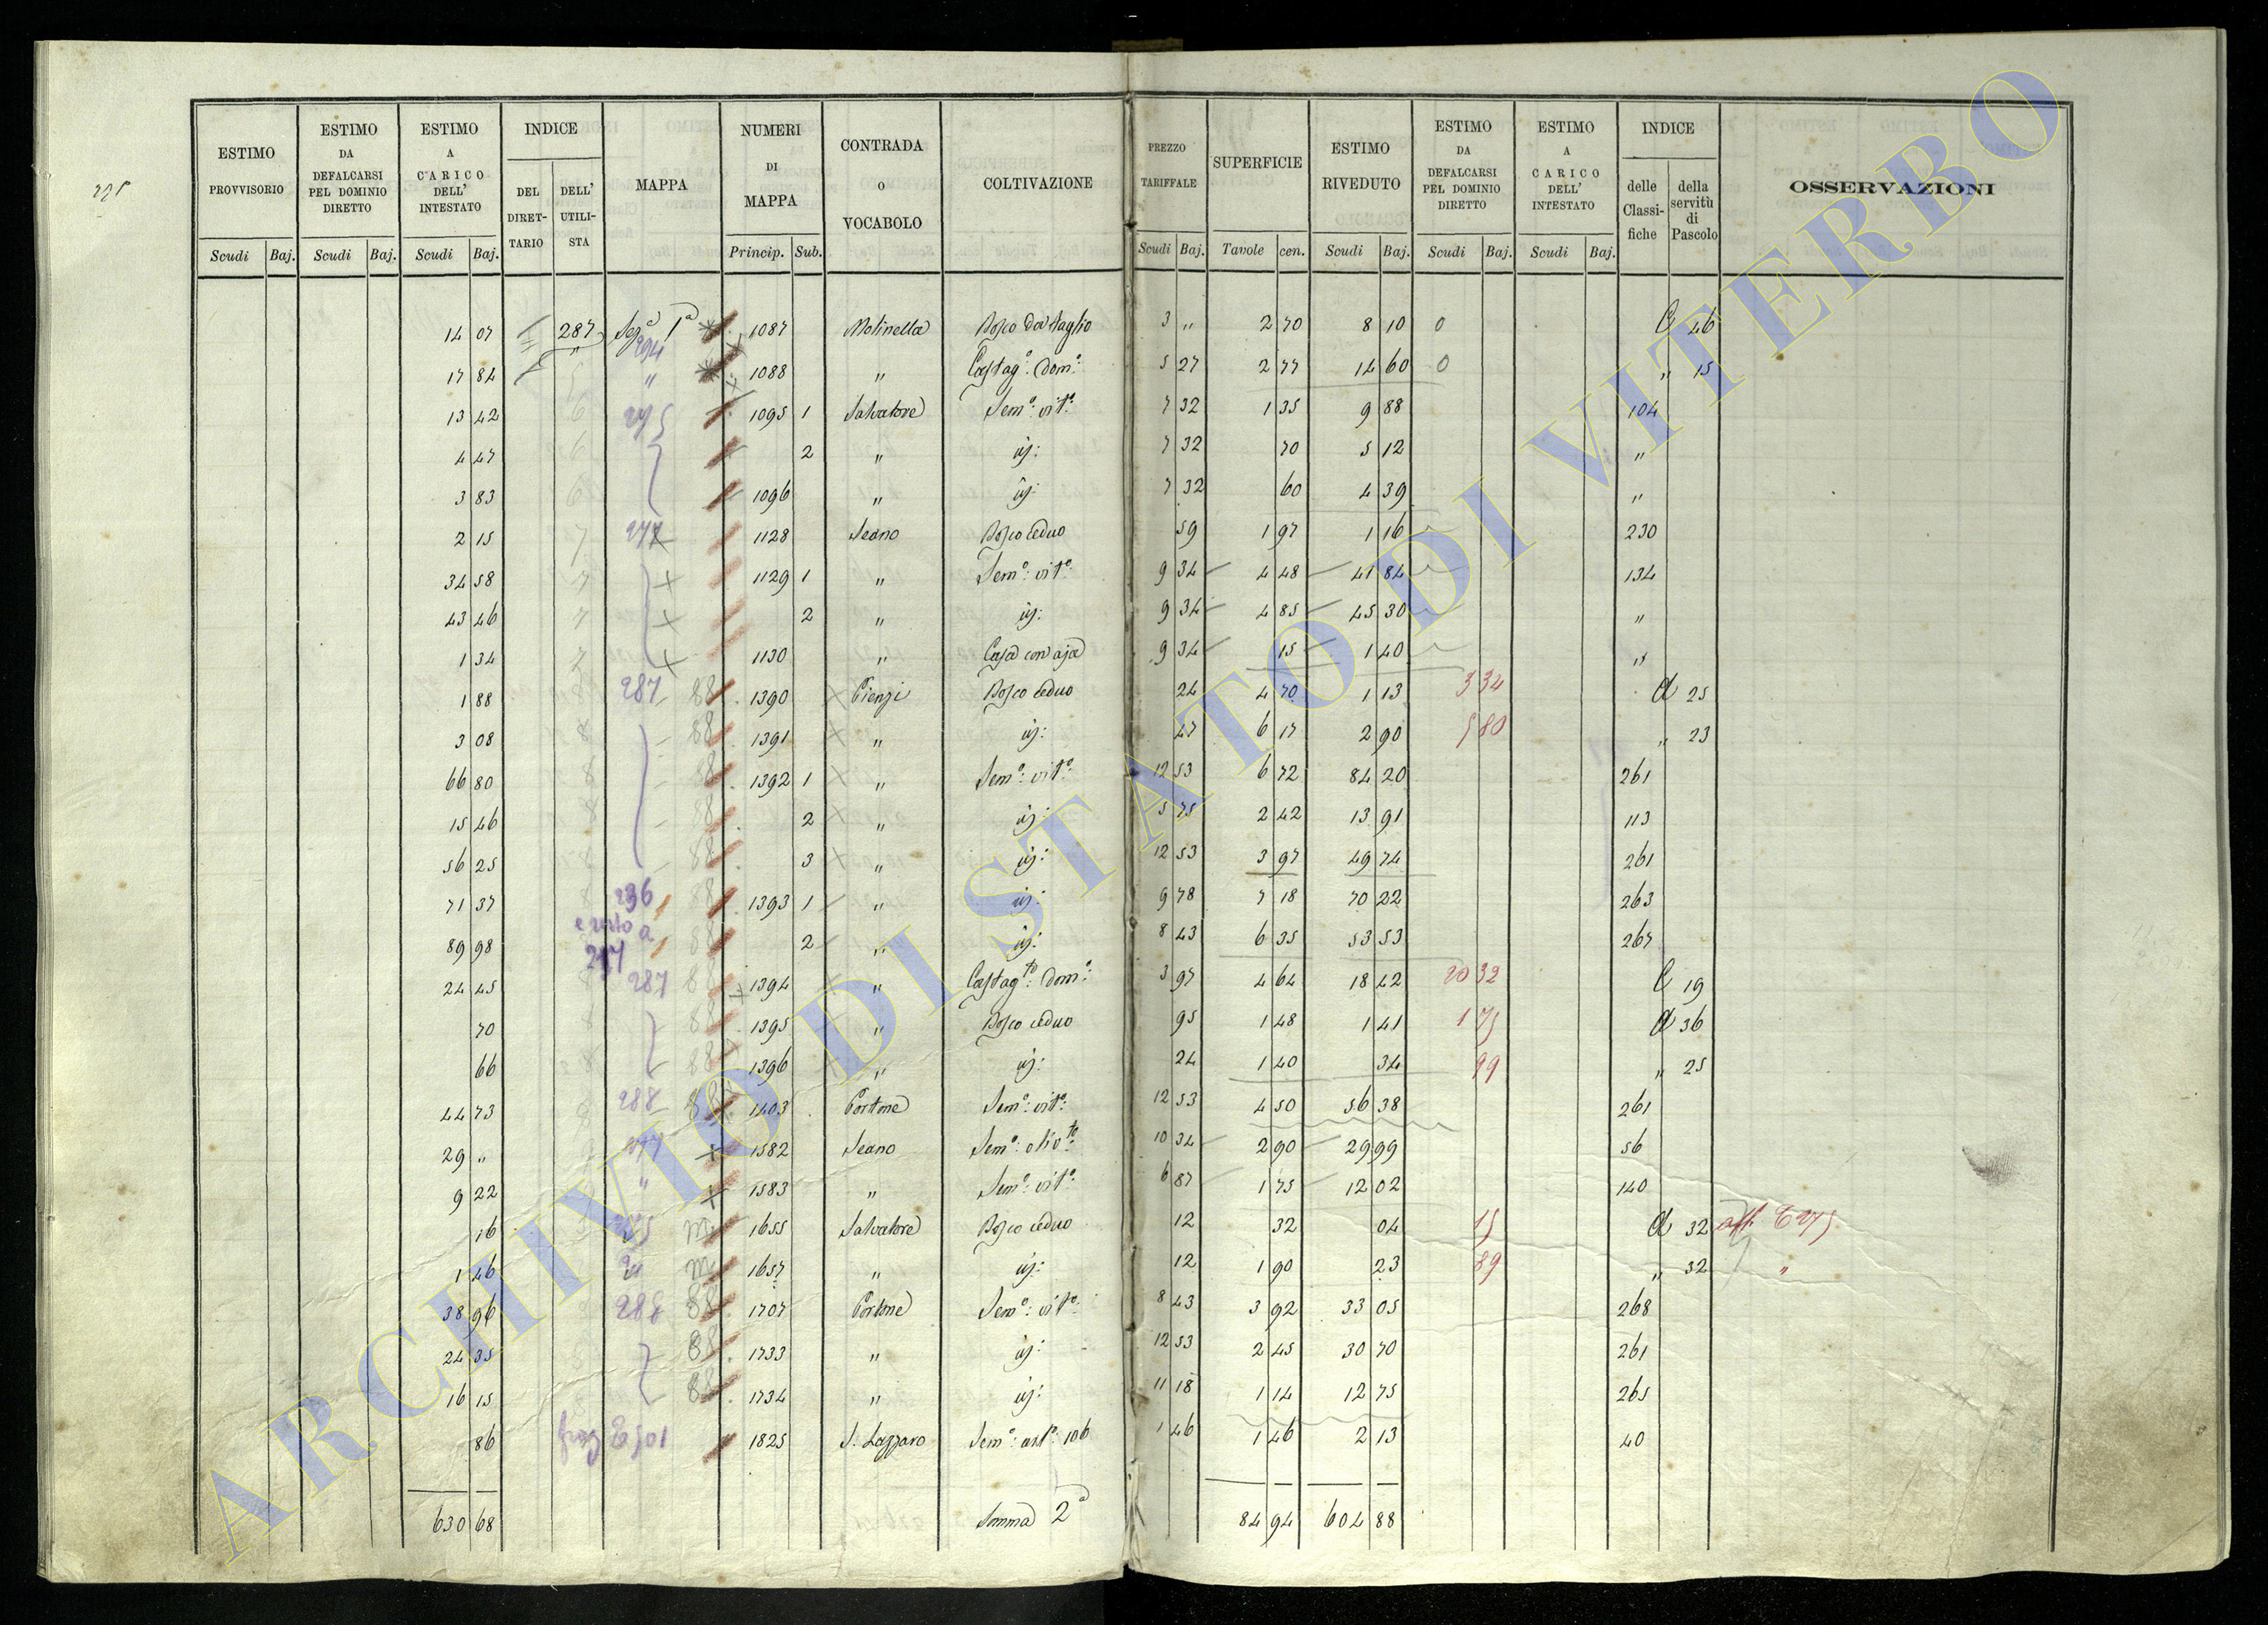 ESTIMO PROVVISORIO | ESTIMO DA DEFALCARSI PEL DOMINIO DIRETTO | ESTIMO A CARICO DELL' INTESTATO | INDICE DEL DIRETTARIO | DELL' UTILISTA | MAPPA | NUMERI DI MAPPA | CONTRADA O VOCABOLO | COLTIVAZIONE | PREZZO TARIFFALE | SUPERFICIE | ESTIMO RIVEDUTO | ESTIMO DA DEFALCARSI PEL DOMINIO DIRETTO | ESTIMO A CARICO DELL' INTESTATO | INDICE delle Classifiche | della servitù di Pascolo | OSSERVAZIONI
Scudi Baj. Scudi Baj. Scudi Baj. Princip. Sub. Scudi Baj. Tavole cen. Scudi Baj. Scudi Baj. Scudi Baj.
14 07 287 Sezᵉ 1ª 1087 Molinella Bosco da taglio 3 " 2 70 8 10 0 C 46
17 84 " 294 " 1088 " Castagᵒ: domᵒ: 5 27 2 77 14 60 0 " 15
13 42 295 1095 1 Salvatore Semᵒ: vitᵒ: 7 32 1 35 9 88 104
4 47 2 " id: 7 32 70 5 12 "
3 83 1096 " id: 7 32 60 4 39 "
2 15 277 1128 Seano Bosco ceduo 59 1 97 1 16 230
34 58 1129 1 " Semᵒ: vitᵒ: 9 34 4 48 41 84 134
43 46 2 " id: 9 34 4 85 45 30 "
1 34 1130 " Casa con aja 9 34 15 1 40 "
1 88 287 88 1390 Pienzi Bosco ceduo 24 4 70 1 13 3 34 A 25
3 08 88 1391 " id: 47 6 17 2 90 5 80 " 23
66 80 88 1392 1 " Semᵒ: vitᵒ: 12 53 6 72 84 20 261
15 46 88 2 " id: 5 75 2 42 13 91 113
56 25 88 3 " id: 12 53 3 97 49 74 261
71 37 296 88 1393 1 " id: 9 78 7 18 70 22 263
e resto a
89 98 88 2 " id: 8 43 6 35 53 53 267
24 45 287 88 1394 " Castagᵗᵒ: domᵒ: 3 97 4 64 18 42 20 32 C 19
70 88 1395 " Bosco ceduo 95 1 48 1 41 1 75 A 36
66 88 1396 " id: 24 1 40 34 99 " 25
44 73 288 88 1403 Portone Semᵒ: vitᵒ: 12 53 4 50 56 38 261
29 " 277 1582 Seano Semᵒ: olivᵗᵒ 10 34 2 90 29 99 56
9 22 " 1583 " Semᵒ: vitᵒ: 6 87 1 75 12 02 140
16 1655 Salvatore Bosco ceduo 12 32 04 15 A 32 275
1 46 1657 " id: 12 1 90 23 89 " 32 "
38 96 288 88 1707 Portone Semᵒ: vitᵒ: 8 43 3 92 33 05 268
24 35 88 1733 " id: 12 53 2 45 30 70 261
16 15 88 1734 " id: 11 18 1 14 12 75 265
86 1825 S. Lazzaro Semᵒ: astᵒ: 106 1 46 1 46 2 13 40
630 68 Somma 2ª 84 94 604 88
ARCHIVIO DI STATO DI VITERBO